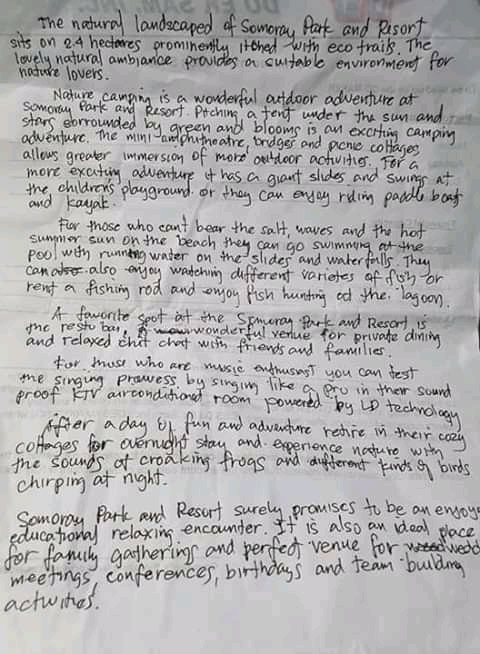 The natural landscaped of Somoray Park and Resort
sits on 2.4 hectares prominently itched with eco trails. The
lovely natural ambiance provides a suitable environment for
nature lovers.
Nature camping is a wonderful outdoor adventure at
Somoray Park and Resort. Pitching a tent under the sun and
stars sorrounded by green and blooms is an exciting camping
adventure. The mini-amphitheatre, bridges and picnic cottages
allows greater immersion of more outdoor activities. For a
more exciting adventure it has a giant slides and swings at
the children's playground or they can enjoy riding paddle boats
and kayak.
For those who can't bear the salt, waves and the hot
summer sun on the beach they can go swimming at the
pool with running water on the slides and waterfalls. They
can also enjoy watching different varietes of fish or
rent a fishing rod and enjoy fish hunting at the lagoon.
A favorite spot at the Somoray Park and Resort is
the resto bar, A wonderful venue for private dining
and relaxed chit chat with friends and families.
For those who are music enthusast you can test
the singing prowess by singing like a pro in their sound
proof KTV airconditioned room powered by LD technology
After a day of fun and adventure retire in their cozy
cottages for overnight stay and experience nature with
the sounds of croaking frogs and different kinds of birds
chirping at night.
Somoray Park and Resort surely promises to be an enjoy
educational relaxing encounter. It is also an ideal place
for family gatherings and perfect venue for wedd
meetings, conferences, birthdays and team building
activities.